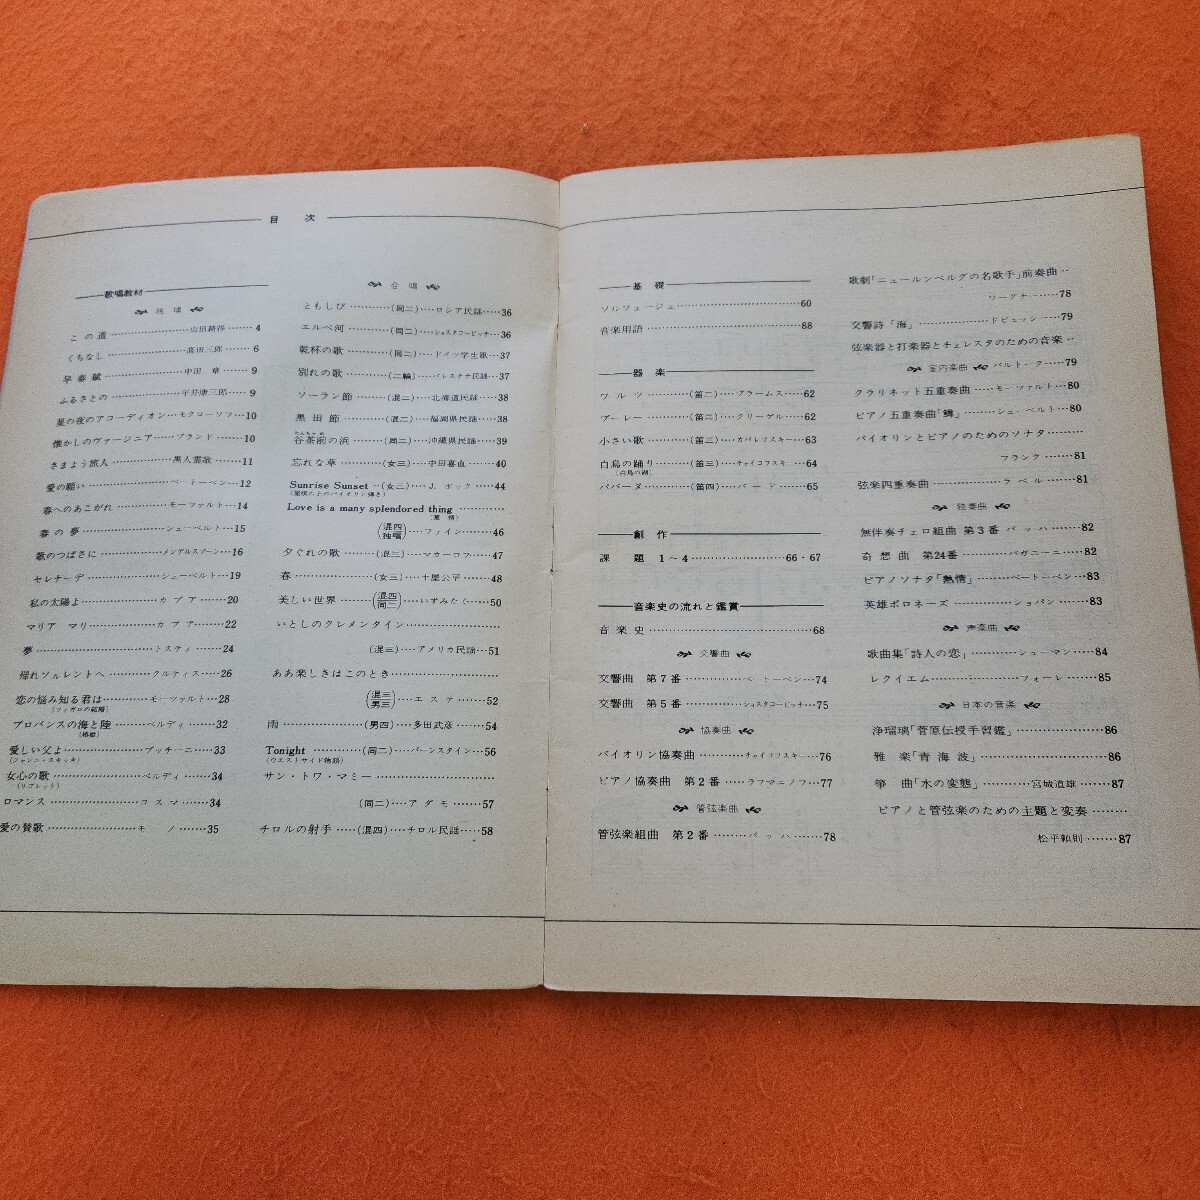 目　次
歌唱教材
独唱
この道……山田耕筰……4
くちなし……髙田三郎……6
早春賦……中田　章……9
ふるさとの……平井康三郎……9
星の夜のアコーディオン…モクロ一ソフ…10
懐かしのヴァージニア……ブランド……10
さまよう旅人……黒人霊歌……11
愛の願い……ベートーベン…12
春へのあこがれ……モーツァルト…14
春の夢……シューベルト…15
歌のつばさに……メンデルスゾーン…16
セレナーデ……シューベルト…19
私の太陽よ……カプア……20
マリア マリ……カプア……22
夢……トスティ……24
帰れソレントへ……クルティス……26
恋の悩み知る君は……モーツァルト…28
(フィガロの結婚)
プロバンスの海と陸……ベルディ……32
(椿姫)
愛しい父よ……プッチーニ……33
(ジャンニ・スキッキ)
女心の歌……ベルディ……34
(リゴレット)
ロマンス……コスマ……34
愛の賛歌……モノ……35
合唱
ともしび……(同二)……ロシア民謡……36
エルベ河……(同二)……ショスタコービッチ…36
乾杯の歌……(同二)……ドイツ学生歌…37
別れの歌……(二輪)……パレスチナ民謡…37
ソーラン節……(混二)……北海道民謡……38
黒田節……(混二)……福岡県民謡……38
谷茶前の浜……(同二)……沖縄県民謡……39
忘れな草……(女三)……中田喜直……40
Sunrise Sunset…(女三)……J. ボック……44
(屋根の上のバイオリン弾き)
Love is a many splendored thing…………
(慕情)
(混四 独唱)……ファイン……46
夕ぐれの歌……(混三)……マカーロフ……47
春……(女三)……土屋公平……48
美しい世界……(混四 同二)…いずみたく……50
いとしのクレメンタイン…………
(混三)……アメリカ民謡……51
ああ楽しきはこのとき…………
(混三 男三)……エステ……52
雨……(男四)……多田武彦……54
Tonight……(同二)……バーンスタイン…56
(ウエストサイド物語)
サン・トワ・マミー…………
(同二)……アダモ……57
チロルの射手……(混四)……チロル民謡……58
基礎
ソルフェージュ……60
音楽用語……88
器楽
ワルツ……(笛二)……ブラームス……62
ブーレー……(笛二)……クリーゲル……62
小さい歌……(笛三)……カバレフスキー…63
白鳥の踊り……(笛三)……チャイコフスキー…64
(白鳥の湖)
パバーヌ……(笛四)……バード……65
創作
課題 1～4……66・67
音楽史の流れと鑑賞
音楽史……68
交響曲
交響曲　第7番……ベートーベン……74
交響曲　第5番……ショスタコービッチ……75
協奏曲
バイオリン協奏曲……チャイコフスキー……76
ピアノ協奏曲　第2番……ラフマニノフ……77
管弦楽曲
管弦楽組曲　第2番……バッハ……78
歌劇「ニュールンベルグの名歌手」前奏曲‥
ワーグナー……78
交響詩「海」……ドビュッシー……79
弦楽器と打楽器とチェレスタのための音楽‥
バルトーク……79
室内楽曲
クラリネット五重奏曲……モーツァルト……80
ピアノ五重奏曲「鱒」……シューベルト……80
バイオリンとピアノのためのソナタ…………
フランク……81
弦楽四重奏曲……ラベル……81
独奏曲
無伴奏チェロ組曲　第3番　バッハ……82
奇想曲　第24番……パガニーニ……82
ピアノソナタ「熱情」……ベートーベン……83
英雄ポロネーズ……ショパン……83
声楽曲
歌曲集「詩人の恋」……シューマン……84
レクイエム……フォーレ……85
日本の音楽
浄瑠璃「菅原伝授手習鑑」……86
雅楽「青海波」……86
箏曲「水の変態」……宮城道雄……87
ピアノと管弦楽のための主題と変奏………
松平頼則……87